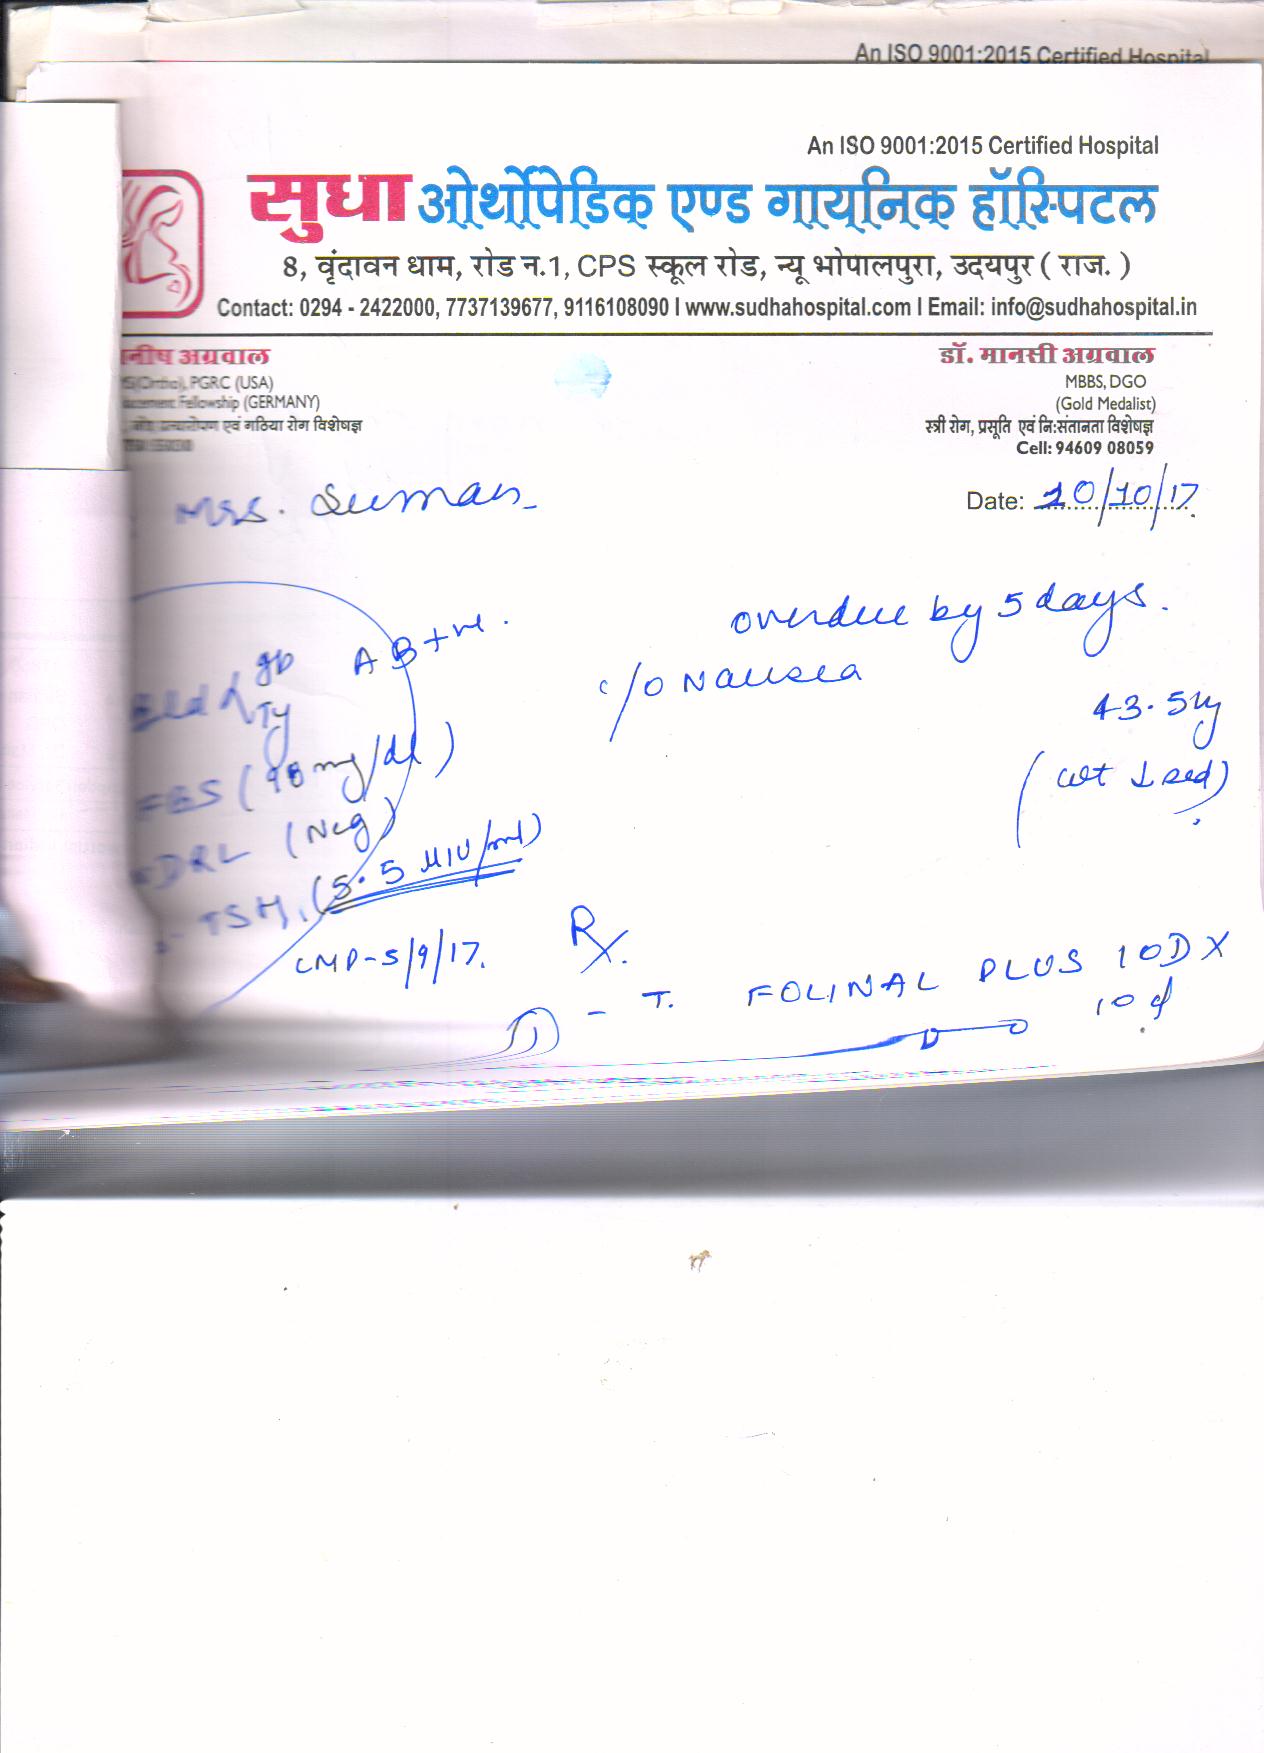 An ISO 9001:2015 Certified Hospital
An ISO 9001:2015 Certified Hospital
सुधा ओर्थोपेडिक एण्ड गायनिक हॉस्पिटल
8, वृंदावन धाम, रोड न.1, CPS स्कूल रोड, न्यू भोपालपुरा, उदयपुर ( राज. )
Contact: 0294 - 2422000, 7737139677, 9116108090 I www.sudhahospital.com I Email: info@sudhahospital.in
अग्रवाल
PGRC (USA)
Fellowship (GERMANY)
एवं गठिया रोग विशेषज्ञ
डॉ. मानसी अग्रवाल
MBBS, DGO
(Gold Medalist)
स्त्री रोग, प्रसूति एवं नि:संतानता विशेषज्ञ
Cell: 94609 08059
Mrs. Suman
Date: 10/10/17
overdue by 5 days.
c/o Nausea
43.5kg
(wt ↓sed)
Bld gp AB+ve.
FBS (98 mg/dl)
VDRL (Neg)
TSH (5.5 µIU/ml)
LMP-5/9/17.
Rx.
- T. FOLINAL PLUS 10D X
10 d